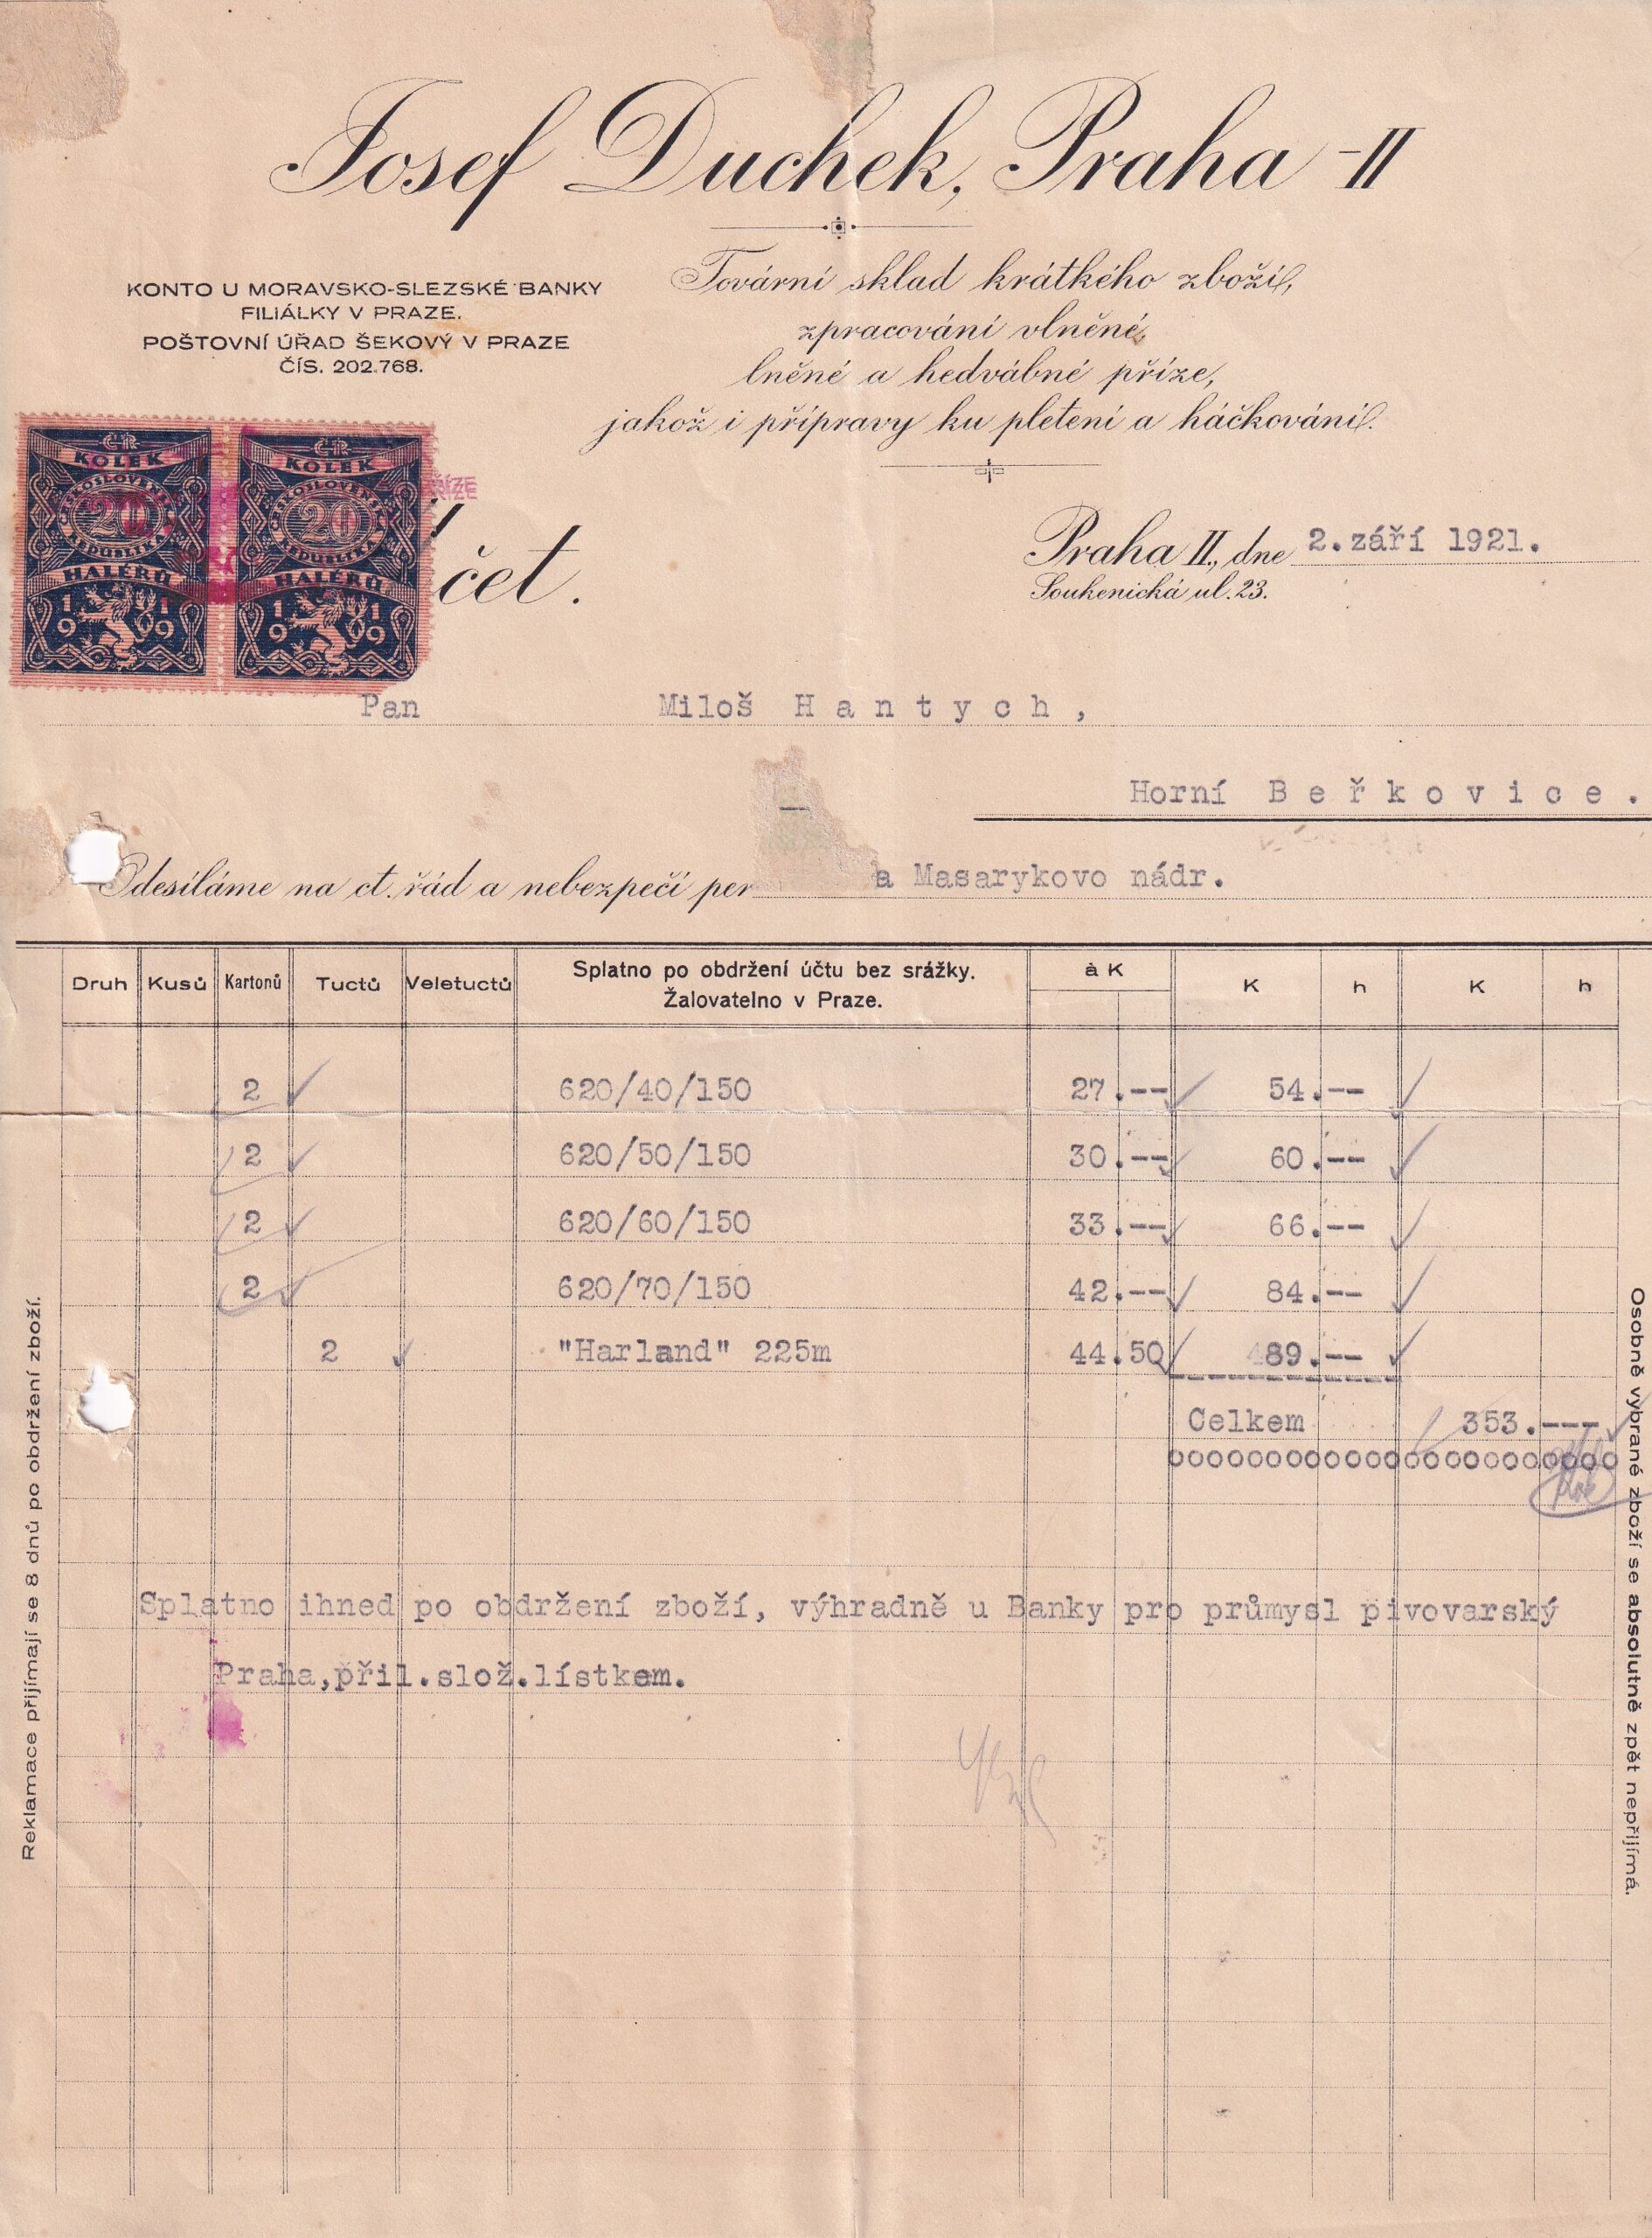 Josef Duchek, Praha-II
KONTO U MORAVSKO-SLEZSKÉ BANKY
FILIÁLKY V PRAZE.
POŠTOVNÍ ÚŘAD ŠEKOVÝ V PRAZE
ČÍS. 202.768.
Tovární sklad krátkého zboží,
zpracování vlněné,
lněné a hedvábné příze,
jakož i přípravy ku pletení a háčkování.
ČR ČR
KOLEK KOLEK
ČESKOSLOVENSKÁ ČESKOSLOVENSKÁ
20 20
REPUBLIKA REPUBLIKA
HALÉŘŮ HALÉŘŮ
1919 1919
PŘÍZE
čet.
Praha II., dne 2.září 1921.
Soukenická ul. 23.
Pan Miloš Hantych,
Horní Beřkovice.
Odesíláme na ct. řád a nebezpečí per a Masarykovo nádr.
Druh Kusů Kartonů Tuctů Veletuctů Splatno po obdržení účtu bez srážky. à K K h K h
Žalovatelno v Praze.
2 620/40/150 27.-- 54.--
2 620/50/150 30.-- 60.--
2 620/60/150 33.-- 66.--
2 620/70/150 42.-- 84.--
2 "Harland" 225m 44.50 89.--
Celkem 353.---
Splatno ihned po obdržení zboží, výhradně u Banky pro průmysl pivovarský
Praha,přil.slož.lístkem.
Reklamace přijímají se 8 dnů po obdržení zboží.
Osobně vybrané zboží se absolutně zpět nepřijímá.